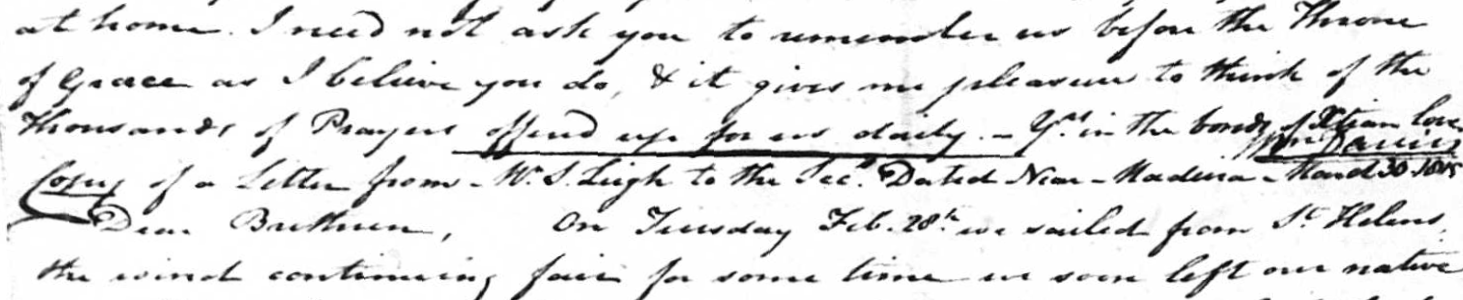 at home. I need not ask you to remember us before the Throne
of Grace as I believe you do, & it gives me pleasure to think of the
thousands of Prayers offered up for us daily. – Yrs. in the bonds of Xtian love
Wm Davies
Copy of a Letter from – Mr. S. Leigh to the Secy. Dated Near – Madeira – March 30 1815
Dear Brethren, On Tuesday Feb. 28th we sailed from St Helens,
the wind continuing fair for some time we soon left our native